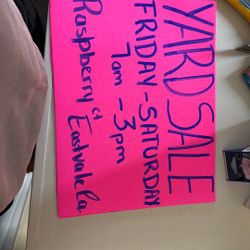 YARD SALE
FRIDAY - SATURDAY
7am - 3pm
Raspberry ct
Eastvale Ca.